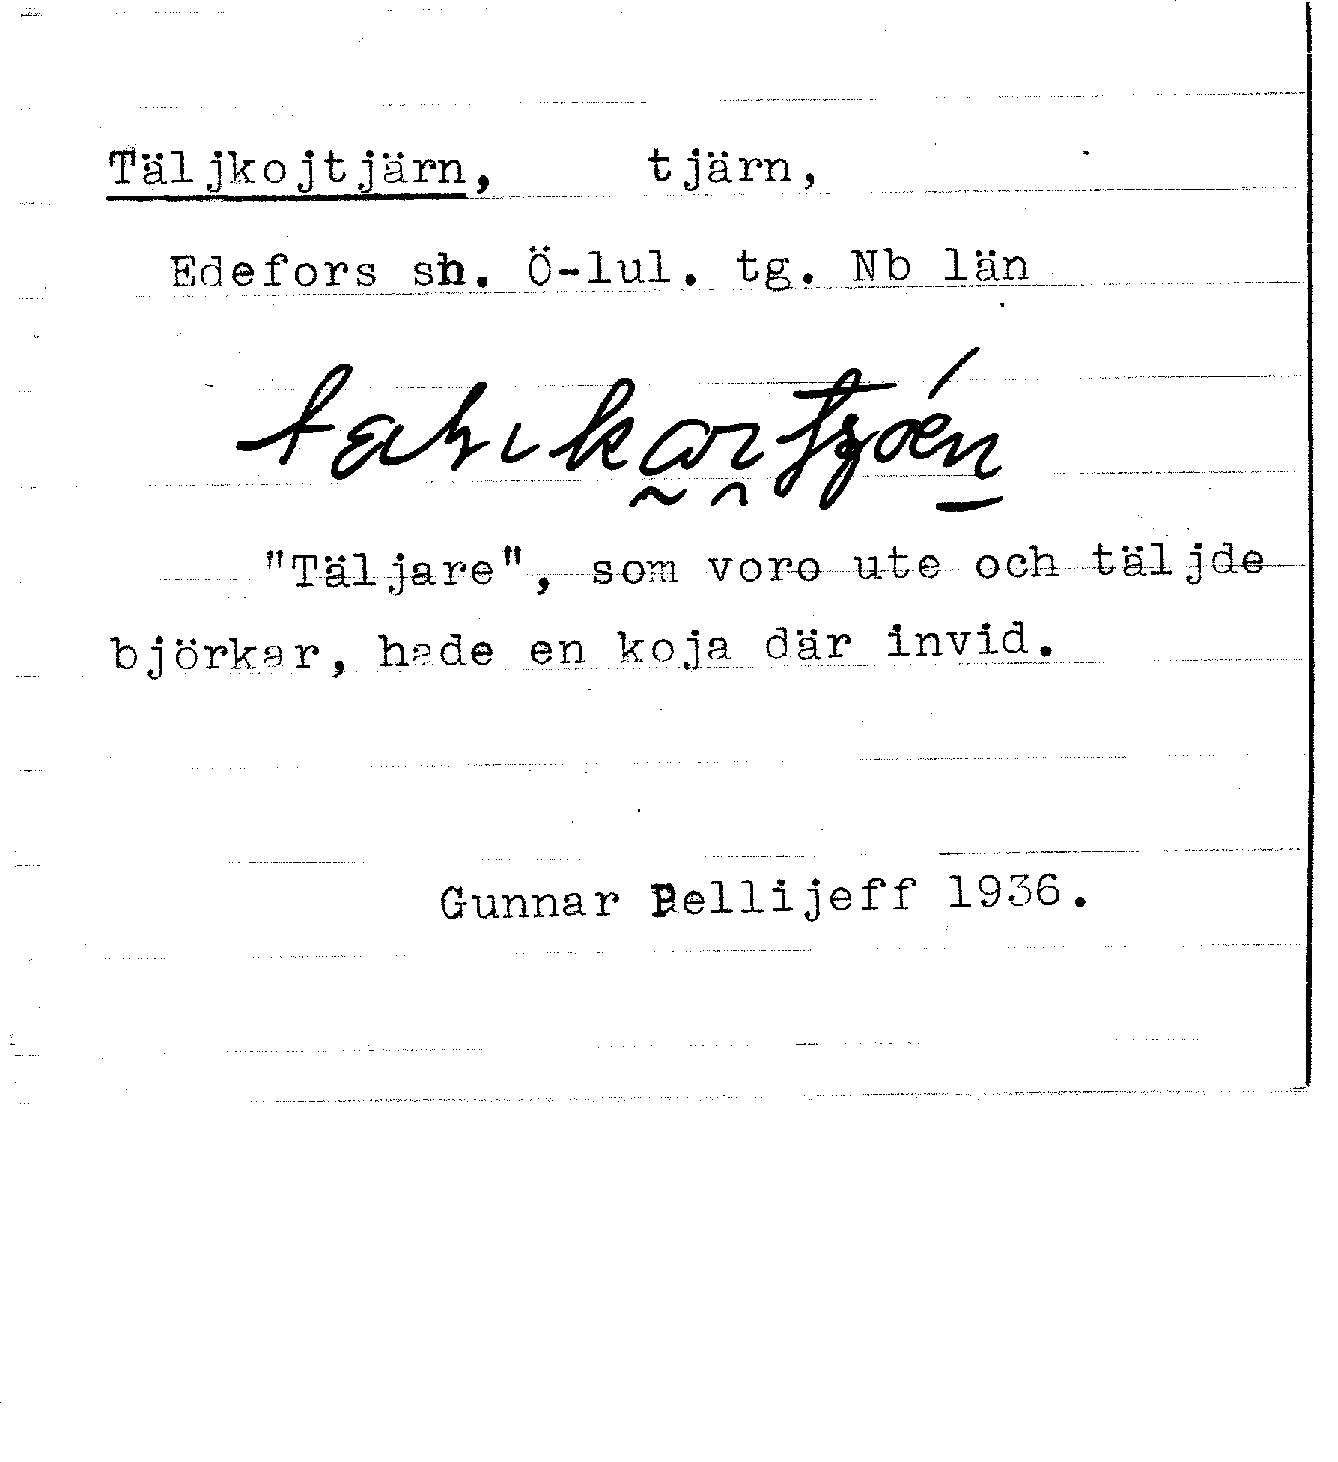 Täljkojtjärn, tjärn,
Edefors sh. Ö-lul. tg. Nb län
"Täljare", som voro ute och täljde
björkar, hade en koja där invid.
Gunnar Pellijeff 1936.